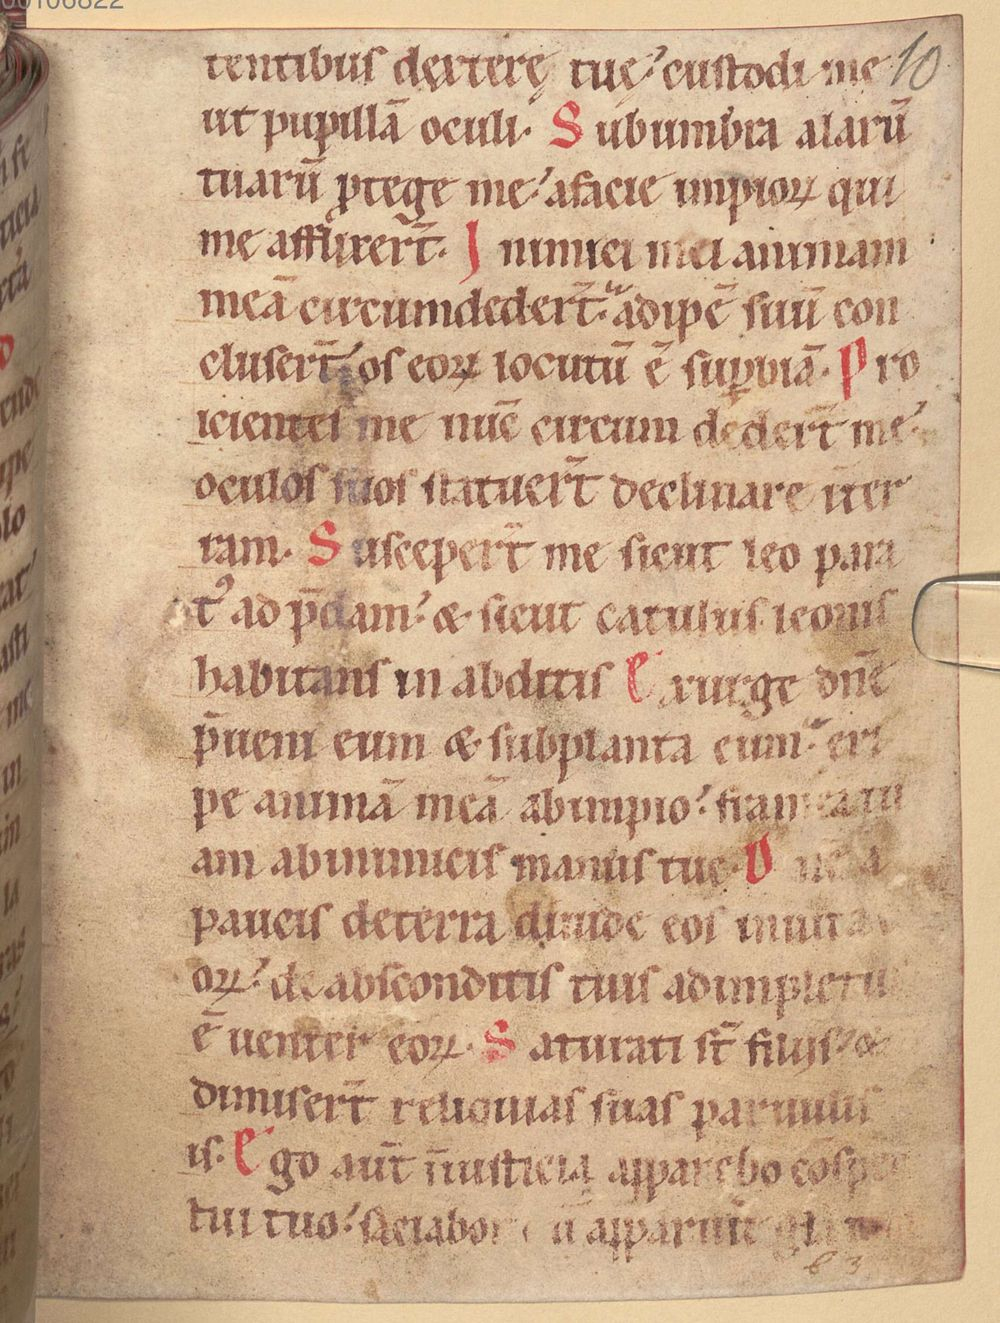 00106822
10
tentibus dexterę tuę. custodi me
ut pupillā oculi. Sub umbra alarū
tuarū ꝓtege me. a facie impioꝝ qui
me afflixer̄t. Inimici mei animam
meā circumdeder̄t. adipē suū con
cluser̄t. os eoꝝ locutū ē suꝑbiā. Pro
icientes me nūc circum deder̄t me.
oculos suos statuer̄t declinare in ter
ram. Susceper̄t me sicut leo para
tꝰ ad p̄dam. & sicut catulus leonis
habitans in abditis Exurge dn̄e
p̄ueni eum & subplanta eum. eri
pe animā meā ab impio. frameam tu
am ab inimicis manus tue. D
paucis de terra diuide eos in uita
oꝝ. de absconditis tuis adimpletu
ē uenter eoꝝ. Saturati st̄ filiis. &
dimiser̄t reliquias suas paruulis
is. Ego aut̄ in iusticia apparebo cōspec
tui tuo. saciabor apparuit
b 3